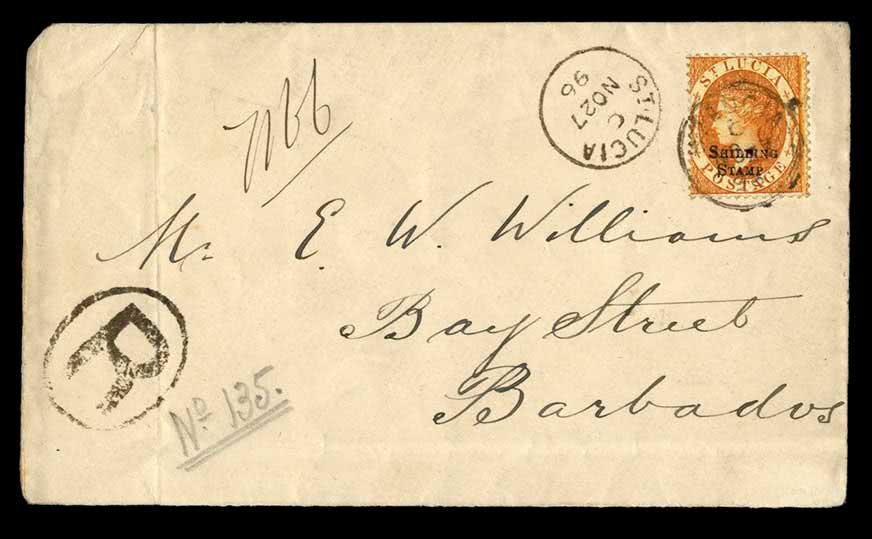 ST. LUCIA
C
NO 27
96
ST LUCIA
SHILLING
STAMP
POSTAGE
Mr E. W. Williams
Bay Street
Barbados
R
No 135.